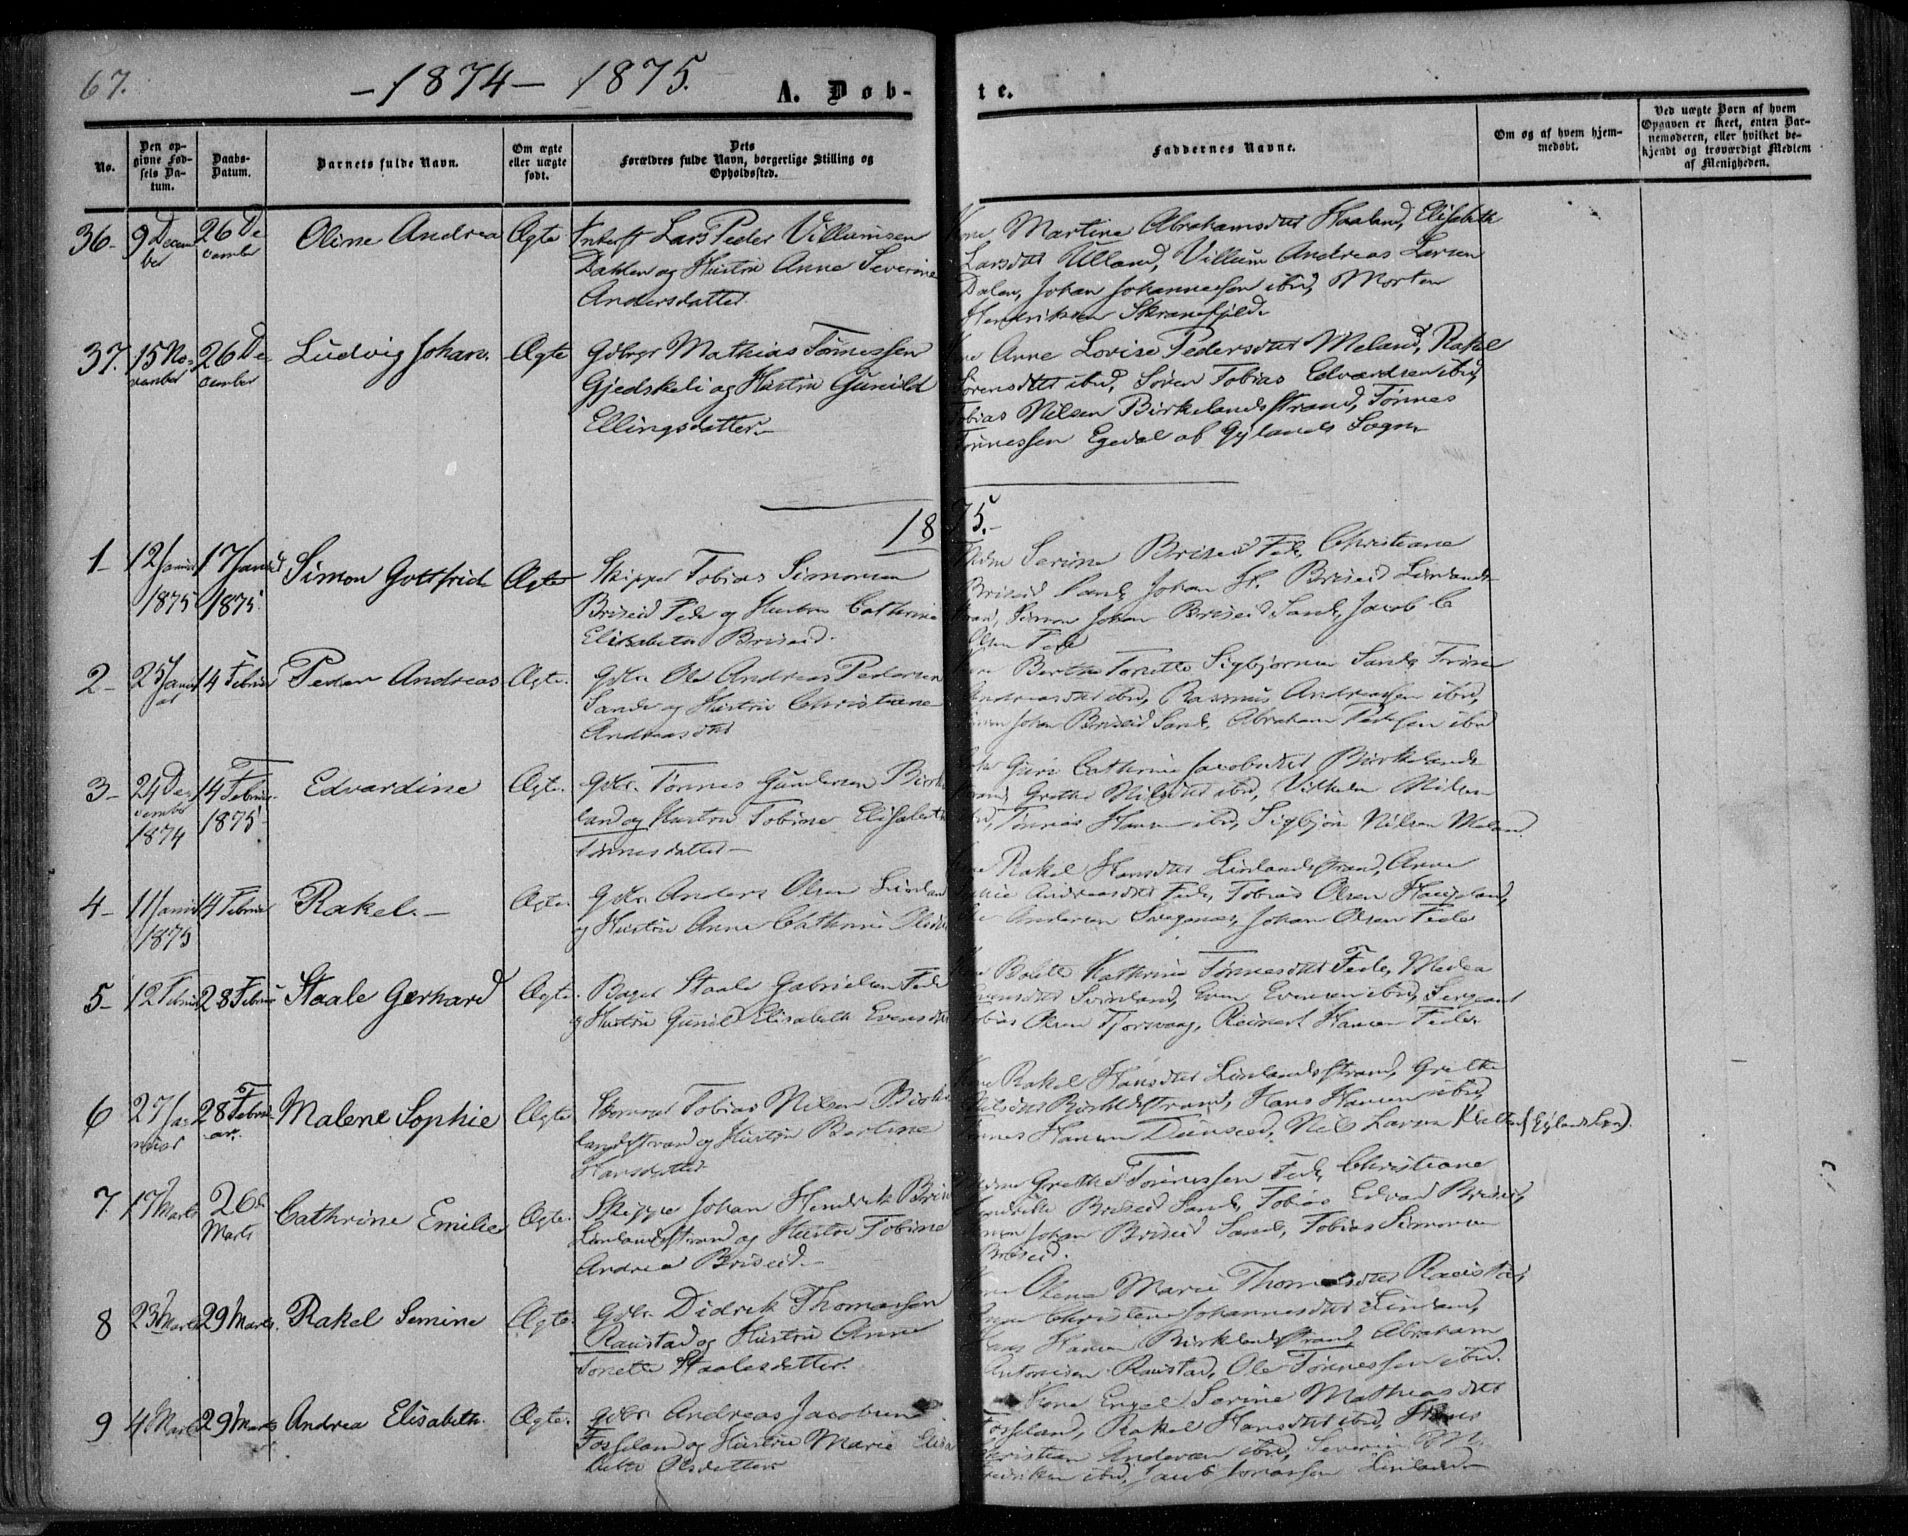 67.
-1874- 1875.
A. Døb-
te.
No.
Den op-
givne Fød-
sels Da-
tum.
Daabs-
Datum.
Barnets fulde Navn.
Om ægte
eller uægte
født.
Dets
Forældres fulde Navn, borgerlige Stilling og
Opholdssted.
Faddernes Navne.
Om og af hvem hjem-
medøbt.
Ved uægte Børn af hvem
Opgaven er skeet, enten Bar-
nemoderen, eller hvilket be-
kjendt og troværdigt Medlem
af Menigheden.
36- 9 Decem
ber
26 De
cember
Oline Andrea
Ægte
Lars Peder Villumsen
Dahlen og Hustru Anne Severine
Andersdatter
Kone Martine Abrahamsdtt Haaland, Elisabeth
Larsdtt Ulland, Villum Andreas Larsen
Dalen, Johan Johannesen ibid, Morten
Hendriksen Skranefjeld
37. 15 No-
vember
26 De
cember
Ludvig Johan.
Ægte
Gdbrgr Mathias Tønnessen
Gjedskeli og Hustru Gunild
Ellingsdatter.-
Anne Lovise Pedersdtt Meland, Rakel
Sørensdtt ibid, Søren Tobias Edvardsen ibid,
Tobias Nilsen Birkelandsstrand, Tønnes
Tønnessen Egedal af Gylands Sogn
1875.-
1- 12 Januar
1875
17 Januar
1875.
Simon Gottfrid
Ægte
Skipper Tobias Simonsen
Briseid Fede og Hustru Cathrine
Elisabeth Briseid.
Serine Briseid Fede, Christiane
Briseid Sande, Johan H. Briseid Linlands
strand, Simon Johan Briseid Sande, Jacob C
Olsen Fede
2- 25 Janu
ar
14 Februar
Peder Andreas
Ægte.
Gdbr. Ole Andreas Pedersen
Sande og Hustru Christiane
Andreasdtt
Berthe Tonette Sigbjørnsen Sande, Trine
Andreasdtt ibid, Rasmus Andreassen ibid,
Simon Johan Briseid Sande, Abraham Pedersen ibid
3- 24 De-
cember
1874
14 Februar
1875
Edvardine
Ægte.
Gdbr. Tønnes Gundersen Birke
land og Hustru Tobine Elisabeth
Tønnesdatter-
Guri Cathrine Jacobsdtt Birkelands
strand, Grethe Nilsdtt ibid, Vilhelm Nilsen
ibid, Tønnes Hansen ibid, Sigbjørn Nilsen Meland
4- 11 Januar
1875
14 Februar
Rakel.-
Ægte.
Gdbr. Anders Olsen Linland
og Hustru Anne Cathrine
Rakel Hansdtt Linlandsstrand, Anne
Andreasdtt Fede, Tobias Olsen Haugeland,
Andersen Svegenes, Johan Olsen Fede
5- 12 Februar
28 Februar
Staale Gerhard
Ægte.
Bager Staale Gabrielsen Fede
og Hustru Gunild Elisabeth Evensdtt
Bolette Kathrine Tønnesdtt Fede, Medea
Evensdtt Svinland, Even Evensen ibid, Sergeant
Tobias Olsen Tjorsvaag, Reinert Hansen Fede.
6 27 Ja-
nuar
28 Febru
ar.
Malene Sophie
Ægte.
Tobias Nilsen Birke
landsstrand og Hustru Bertine
Hansdatter
Kone Rakel Hansdtt Linlandsstrand, Grethe
Nilsdtt Birkelandsstrand, Hans Hansen ibid,
Tønnes Hansen Dunseid, Nils Larsen (Gylands Sogn).
7 17 Marts
26de
Marts
Cathrine Emilie
Ægte.
Skipper Johan Hendrik Briseid
Linlandsstrand og Hustru Tobine
Andrea Briseid.-
Grethe Tønnessen Fede, Christiane
Hendrikke Briseid Sande, Tobias Edvard Briseid,
Simon Johan Briseid Sande, Tobias Simonsen
Briseid.
8 23 Marts
29 Marts.
Rakel Semine
Ægte.
Gdbr. Didrik Thomassen
Raustad og Hustru Anne
Tonette Staalesdatter.
Olene Marie Thomasdtt Raustad,
Christene Johannesdtt Linland,
Hans Hansen Birkelandsstrand, Abraham
Antonisen Raustad, Ole Tønnessen ibid.
9 4 Marts
29 Marts
Andrea Elisabeth.
Ægte.
Gdbr. Andreas Jacobsen
Fossland og Hustru Marie Elisa
beth Olsdatter
Kone Engel Serine Mathiasdtt
Fossland, Rakel Hansdtt ibid, Hans
Christian Andersen ibid, Severin
Fredriksen ibid, Jacob Jonassen Linland